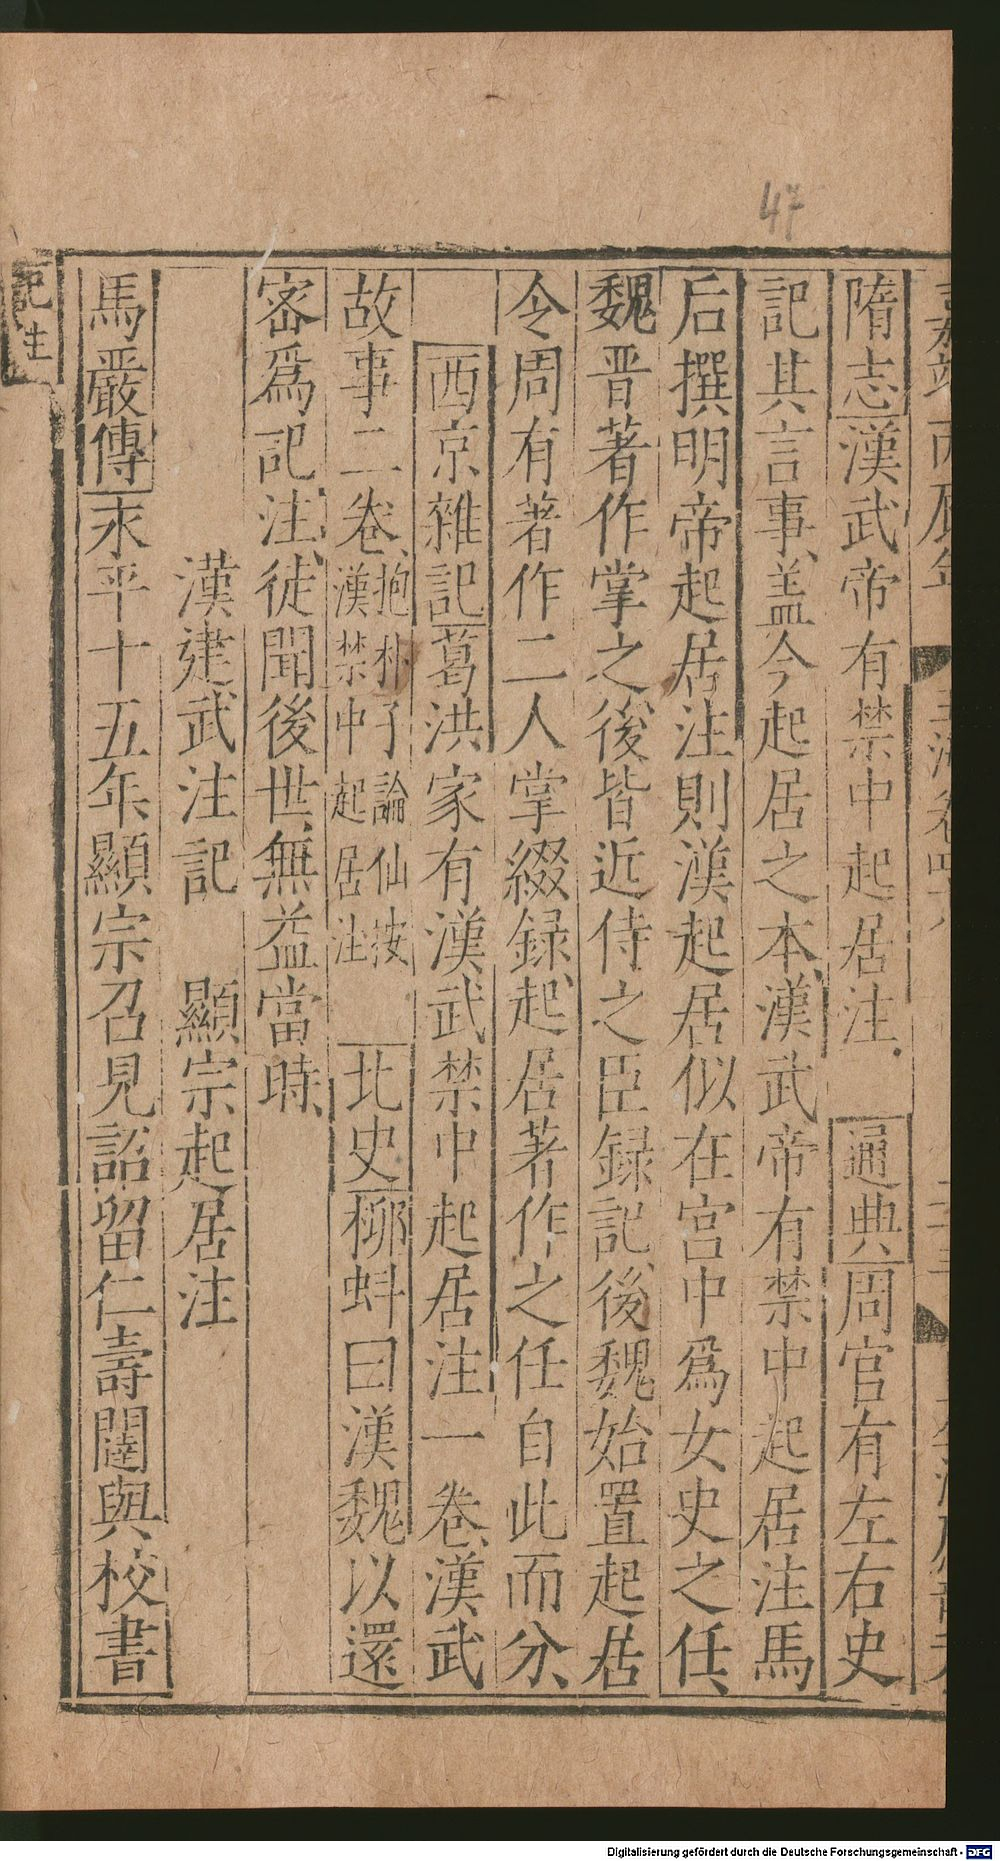 47
嘉靖丙辰年 玉海卷四十八
隋志漢武帝有禁中起居注 通典周官有左右史
記其言事蓋今起居之本漢武帝有禁中起居注馬
后撰明帝起居注則漢起居似在宮中爲女史之任
魏晉著作掌之後皆近侍之臣録記後魏始置起居
令周有著作二人掌綴録起居著作之任自此而分
西京雜記葛洪家有漢武禁中起居注一卷漢武
故事二卷抱朴子論仙按漢禁中起居注 北史柳蚪曰漢魏以還
密爲記注徒聞後世無益當時
漢建武注記 顯宗起居注
馬嚴傳永平十五年顯宗召見詔留仁壽闥與校書
記注
Digitalisierung gefördert durch die Deutsche Forschungsgemeinschaft - DFG